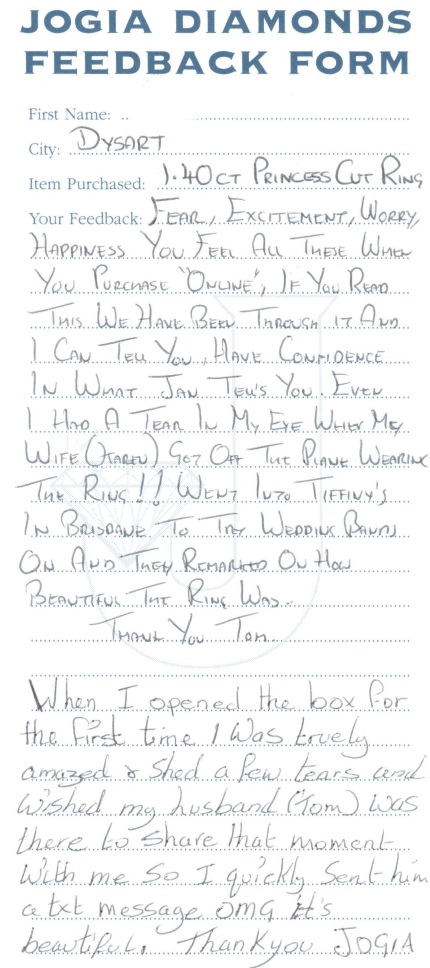 JOGIA DIAMONDS
FEEDBACK FORM
First Name: ..
City: DYSART
Item Purchased: 1.40CT PRINCESS CUT RING
Your Feedback: FEAR, EXCITEMENT, WORRY,
HAPPINESS YOU FEEL ALL THESE WHEN
YOU PURCHASE "ONLINE", IF YOU READ
THIS WE HAVE BEEN THROUGH IT AND
I CAN TELL YOU, HAVE CONFIDENCE
IN WHAT JAN TELL'S YOU. EVEN
I HAD A TEAR IN MY EYE WHEN MY
WIFE (KAREN) GOT OFF THE PLANE WEARING
THE RING!! WENT INTO TIFFINY'S
IN BRISBANE TO TRY WEDDING BANDS
ON AND THEY REMARKED ON HOW
BEAUTIFUL THE RING WAS..
THANK YOU TOM
When I opened the box for
the first time I was truely
amazed & shed a few tears and
wished my husband (Tom) was
there to share that moment
with me so I quickly sent him
a txt message omg it's
beautiful. Thankyou JOGIA